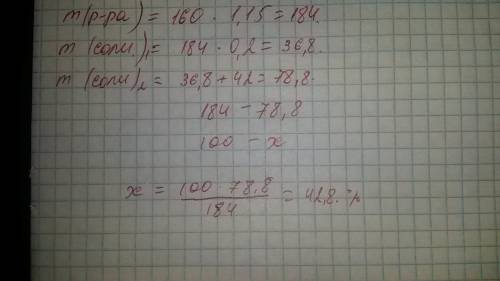 m(р-ра) = 160 · 1,15 = 184.
m (соли)₁ = 184 · 0,2 = 36,8.
m (соли)₂ = 36,8 + 42 = 78,8.
184 – 78,8
100 – x
x = 100 · 78,8 / 184 = 42,8.